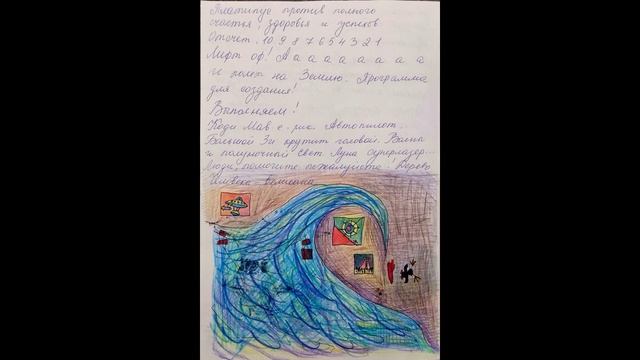 Платипус против полного
счастья, здоровья и успехов.
Отсчет. 10 9 8 7 6 5 4 3 2 1
Лифт оф! А а а а а а а а а
и полет на Землю. Программа
для создания!
Выполняем!
Коди Мав с. рис. Автопилот.
Большой Зи крутит головой. Волны
и полуночный свет. Луна суперлазер.
Люди, помогите пожалуйста!